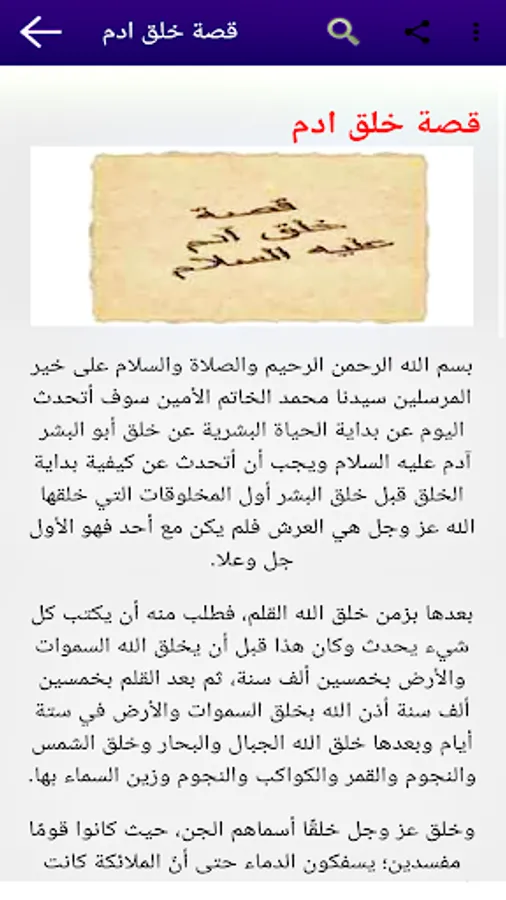 قصة خلق ادم
قصة خلق ادم
قصة
خلق ادم
عليه السلام
بسم الله الرحمن الرحيم والصلاة والسلام على خير
المرسلين سيدنا محمد الخاتم الأمين سوف أتحدث
اليوم عن بداية الحياة البشرية عن خلق أبو البشر
آدم عليه السلام ويجب أن أتحدث عن كيفية بداية
الخلق قبل خلق البشر أول المخلوقات التي خلقها
الله عز وجل هي العرش فلم يكن مع أحد فهو الأول
جل وعلا.
بعدها بزمن خلق الله القلم، فطلب منه أن يكتب كل
شيء يحدث وكان هذا قبل أن يخلق الله السموات
والأرض بخمسين ألف سنة، ثم بعد القلم بخمسين
ألف سنة أذن الله بخلق السموات والأرض في ستة
أيام وبعدها خلق الله الجبال والبحار وخلق الشمس
والنجوم والقمر والكواكب والنجوم وزين السماء بها.
وخلق عز وجل خلقًا أسماهم الجن، حيث كانوا قومًا
مفسدين؛ يسفكون الدماء حتى أنّ الملائكة كانت